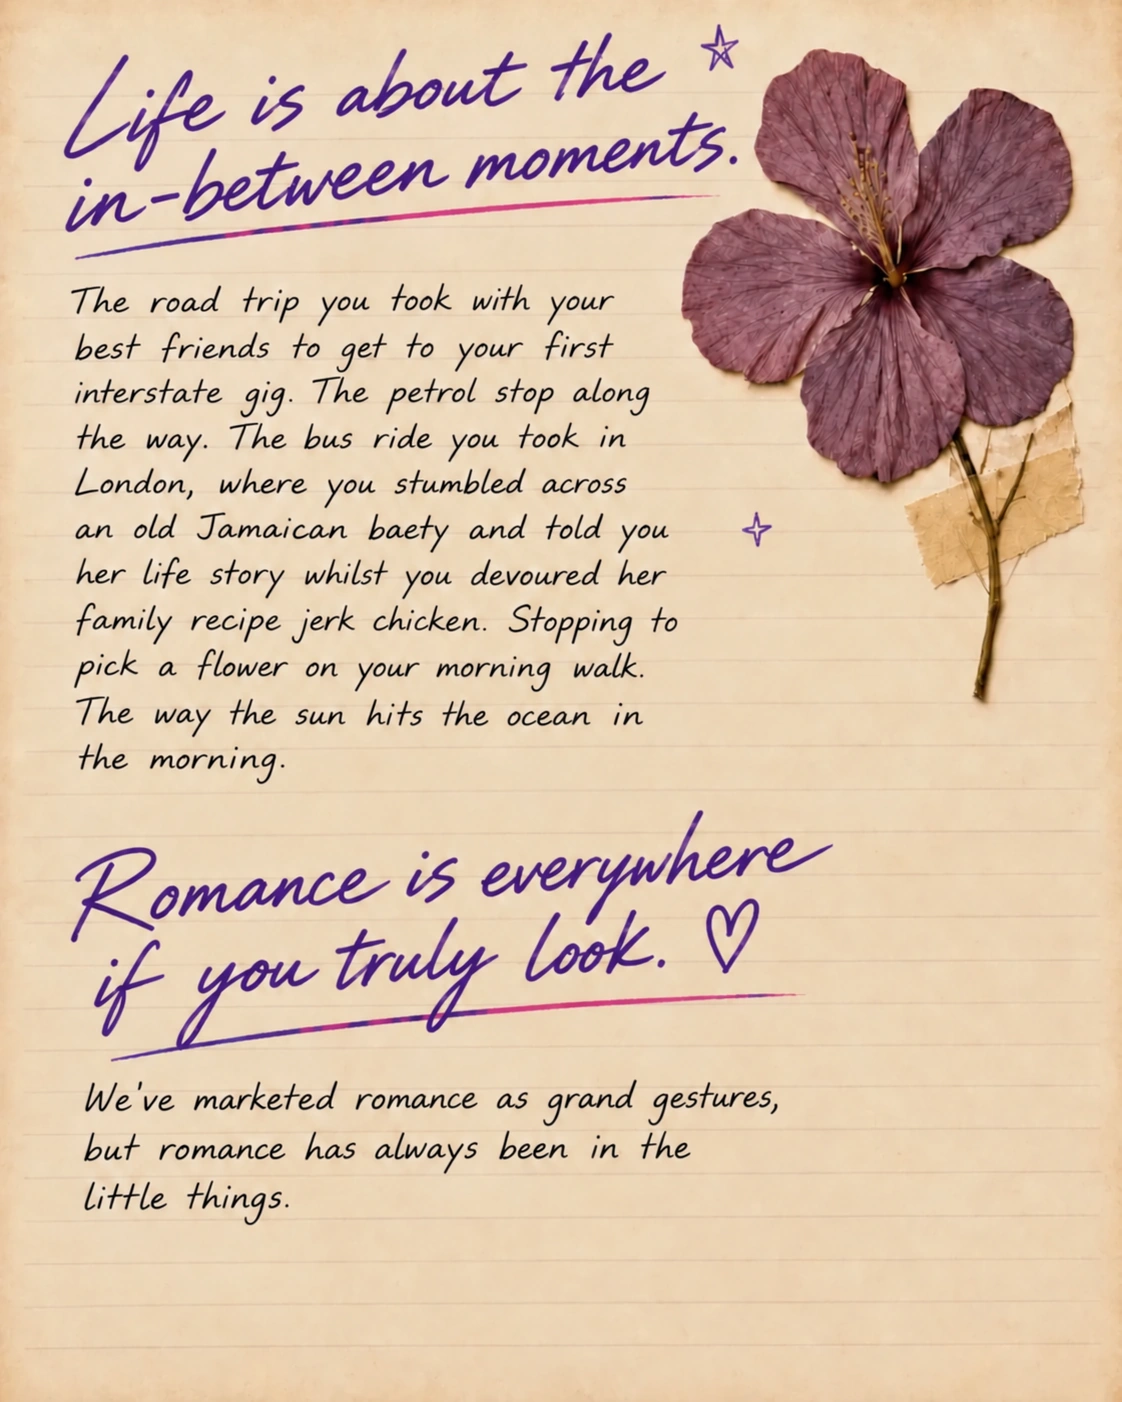 Life is about the
in-between moments.
The road trip you took with your
best friends to get to your first
interstate gig. The petrol stop along
the way. The bus ride you took in
London, where you stumbled across
an old Jamaican baety and told you
her life story whilst you devoured her
family recipe jerk chicken. Stopping to
pick a flower on your morning walk.
The way the sun hits the ocean in
the morning.
Romance is everywhere
if you truly look.
We've marketed romance as grand gestures,
but romance has always been in the
little things.